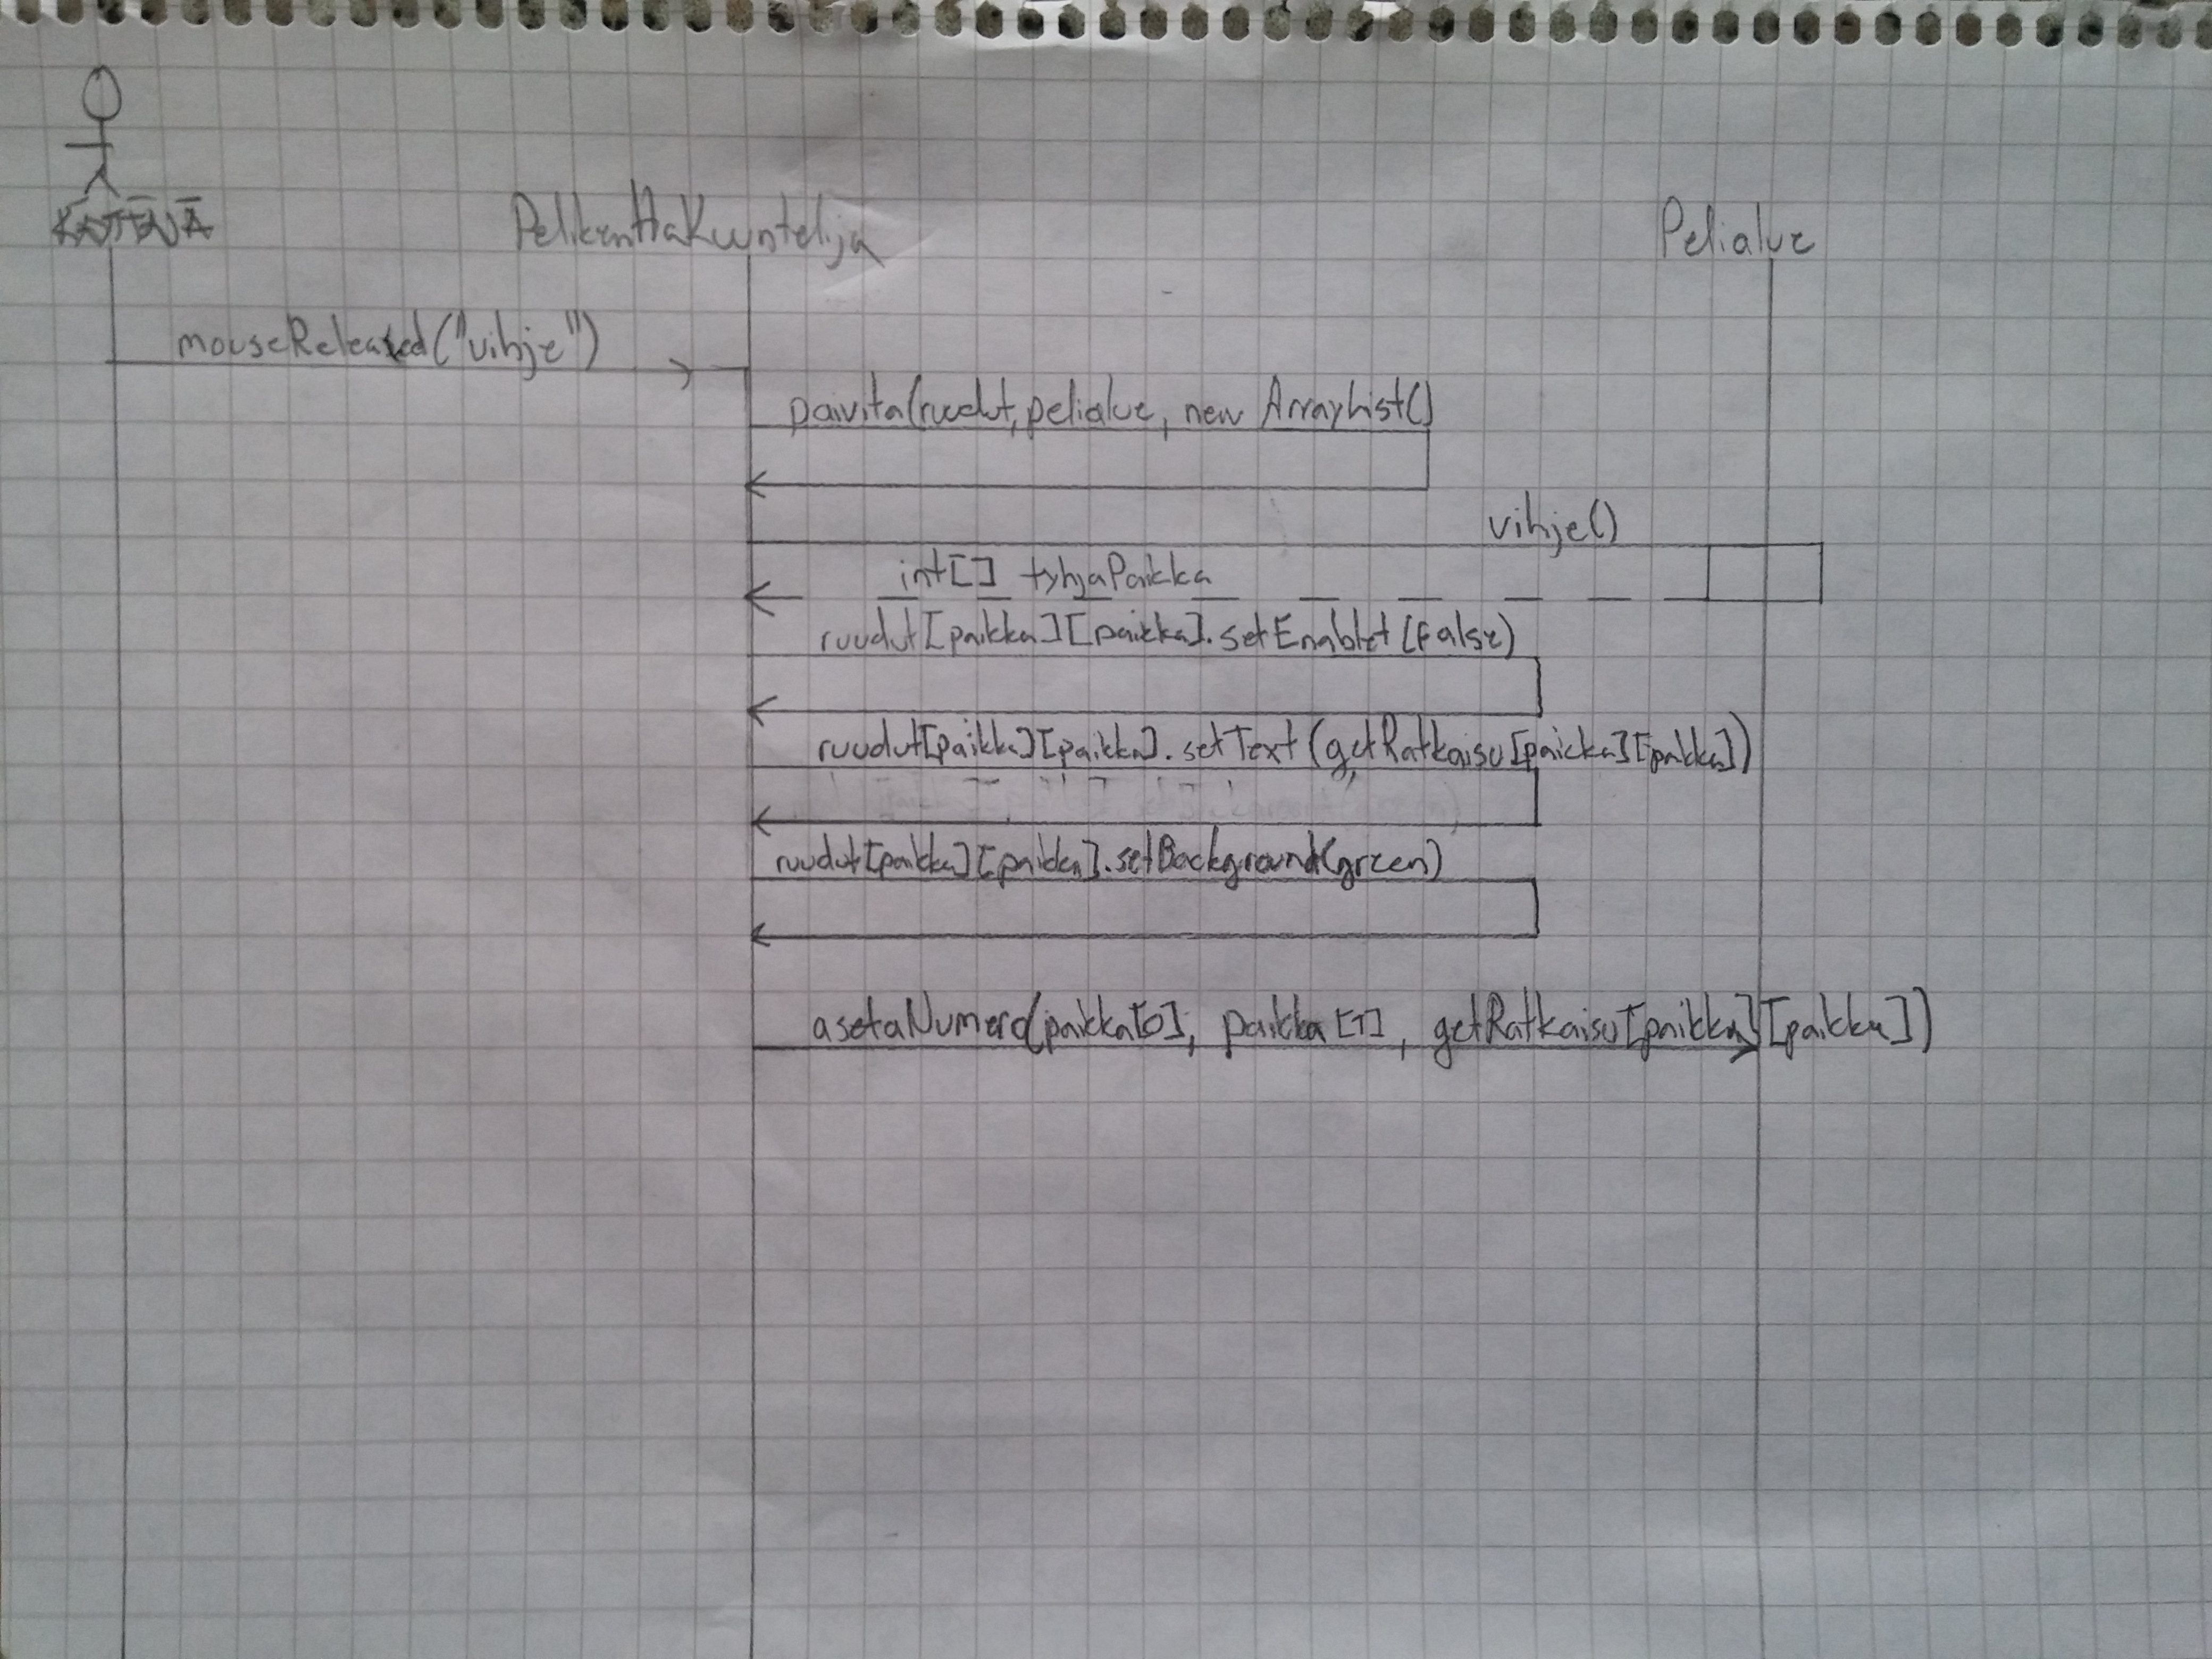 PelikenttaKuuntelija
Pelialue
mouseReleased("vihje")
paivita(ruudut, pelialue, new ArrayList()
vihje()
int[] tyhjaPaikka
ruudut[paikka][paikka].setEnablet(false)
ruudut[paikka][paikka].setText(getRatkaisu[paicka][paikka])
ruudut[paikka][paikka].setBackground(green)
asetaNumero(paikka[0], paikka[1], getRatkaisu[paikka][paikka])